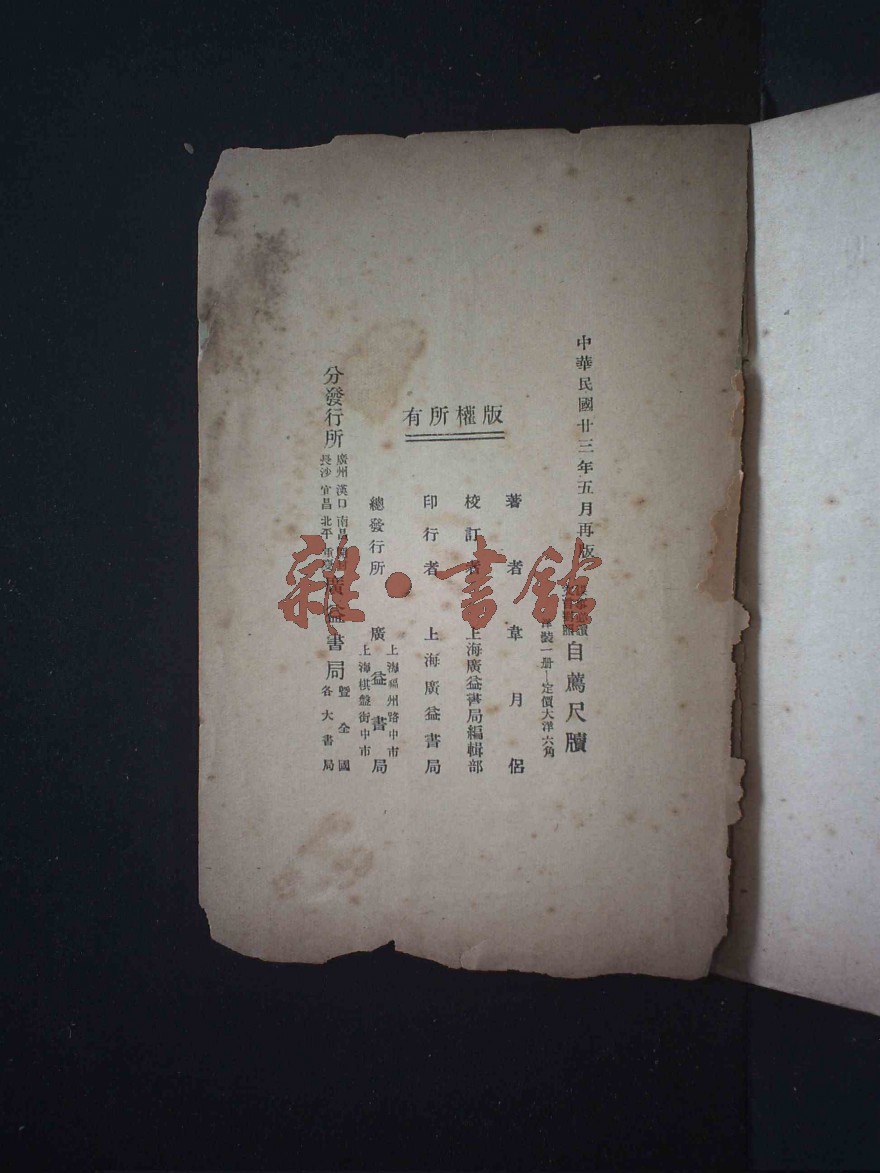 中華民國廿三年五月再版
自薦尺牘
裝一册 定價大洋六角
版權所有
著者 韋月侶
校訂者 上海廣益書局編輯部
印行者 上海廣益書局
總發行所 廣益書局
上海福州路中市
上海棋盤街中市
分發行所
廣州 漢口 南昌
長沙 宜昌 北平 重慶
廣益書局
暨全國
各大書局
雜·書館